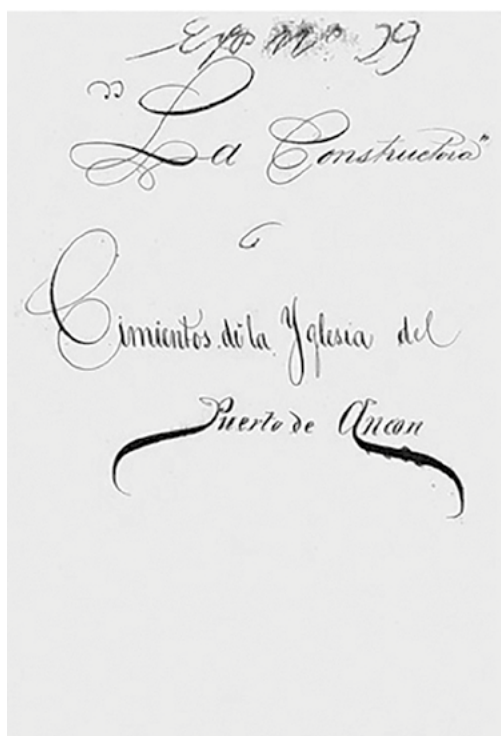 Exp Nº 39
"La Constructora"
Cimientos de la Yglesia del
Puerto de Ancon